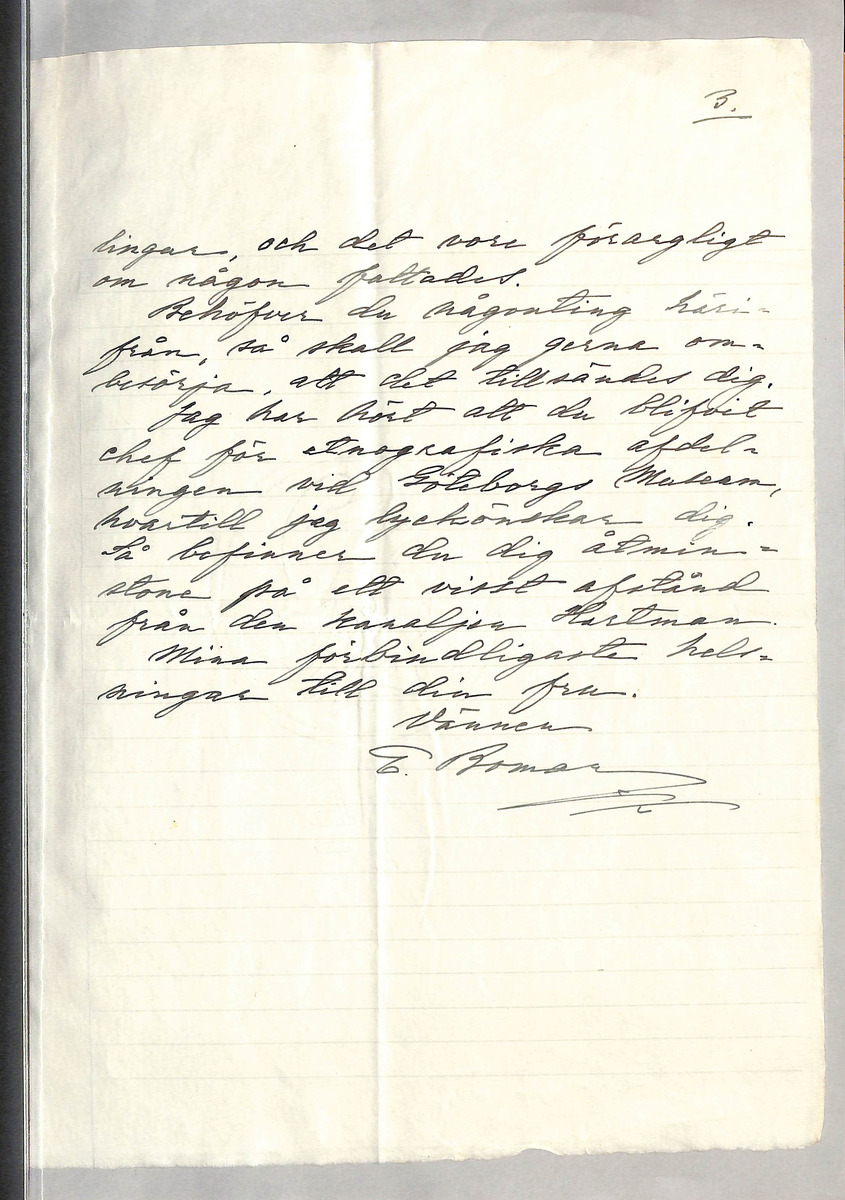 3.
lingar, och det vore förargligt
om någon fattades.
Behöfver du någonting häri=
från, så skall jag gerna om=
besörja, att det tillsändes dig.
Jag har hört att du blifvit
chef för etnografiska afdel=
ningen vid Göteborgs Museum,
hvartill jag lyckönskar dig.
Så befinner du dig åtmin=
stone på ett visst afstånd
från den kanaljen Hartman.
Mina förbindligaste hels=
ningar till din fru.
Vännen
E. Boman